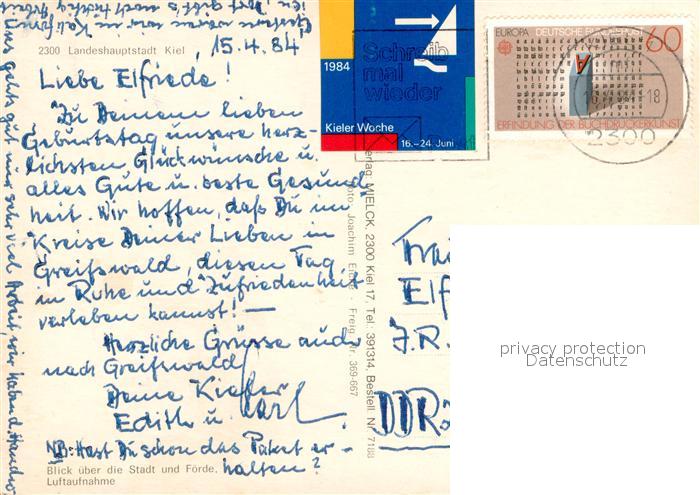 2300 Landeshauptstadt Kiel
15.4.84
Liebe Elfriede!
Zu Deinem lieben
Geburtstag unsere herz-
lichsten Glückwünsche u.
alles Gute u. beste Gesund
heit. Wir hoffen, daß Du im
Kreise Deiner Lieben in
Greifswald, diesen Tag
in Ruhe und Zufriedenheit
verleben kannst! —
Herzliche Grüsse auch
nach Greifswald
Deine Kieler
Edith u. Karl.
NB: Hast Du schon das Paket er-
halten?
Blick über die Stadt und Förde,
Luftaufnahme
uns geht's gut nur sehr viel Arbeit, wir haben d.
Verlag: MIELCK, 2300 Kiel 17, Tel.: 391314, Bestell. Nr. 7188
Foto: Joachim - Freig. Nr. 369-667
1984
Kieler Woche
16.–24. Juni
Schreib
mal
wieder
EUROPA DEUTSCHE BUNDESPOST 60
A
ERFINDUNG DER BUCHDRUCKERKUNST
-18
2300
Elf
J.R.
DDR
privacy protection
Datenschutz